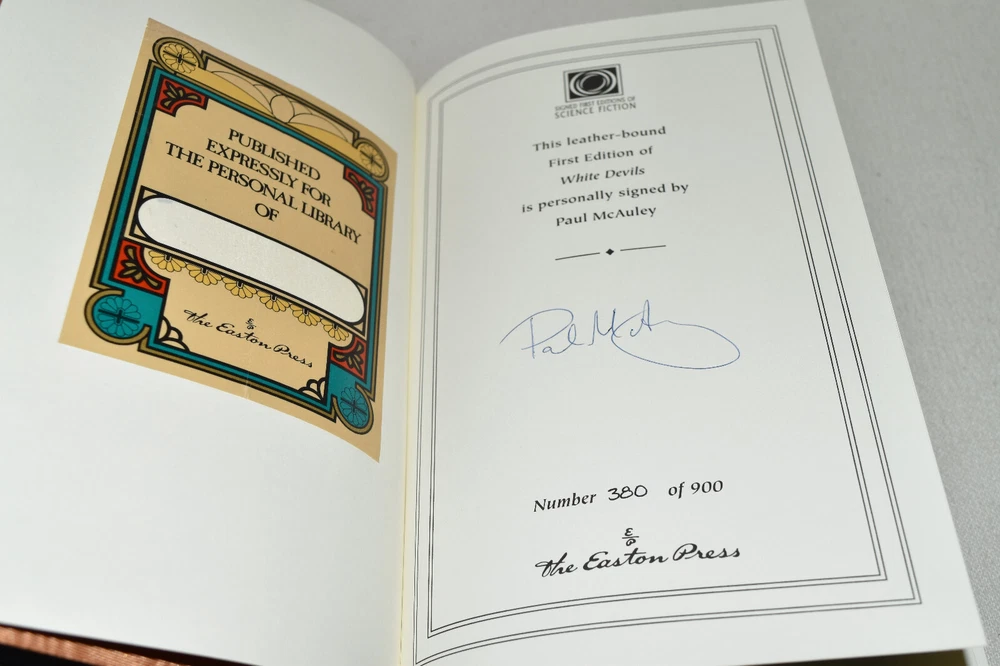 PUBLISHED
EXPRESSLY FOR
THE PERSONAL LIBRARY
OF
E
P
The Easton Press
SIGNED FIRST EDITIONS OF
SCIENCE FICTION
This leather-bound
First Edition of
White Devils
is personally signed by
Paul McAuley
Paul McAuley
Number 380 of 900
E
P
The Easton Press